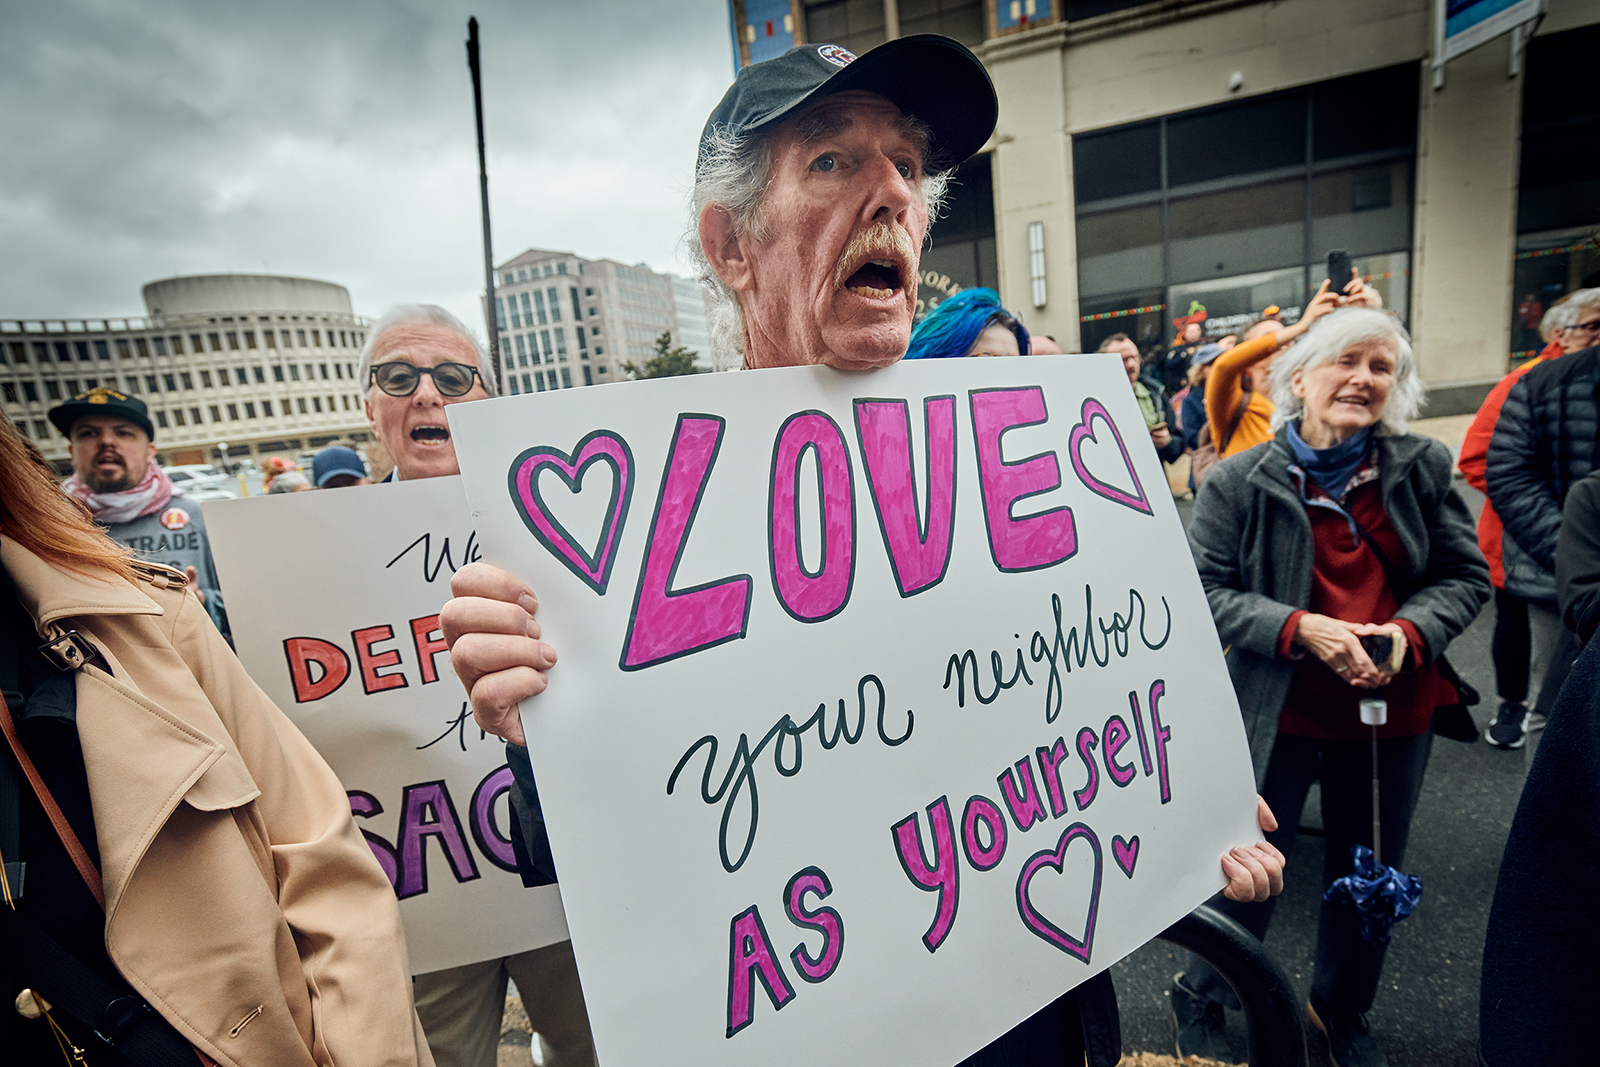 LOVE
your neighbor
AS yourself
We
DEF
SAC
TRADE
WORK